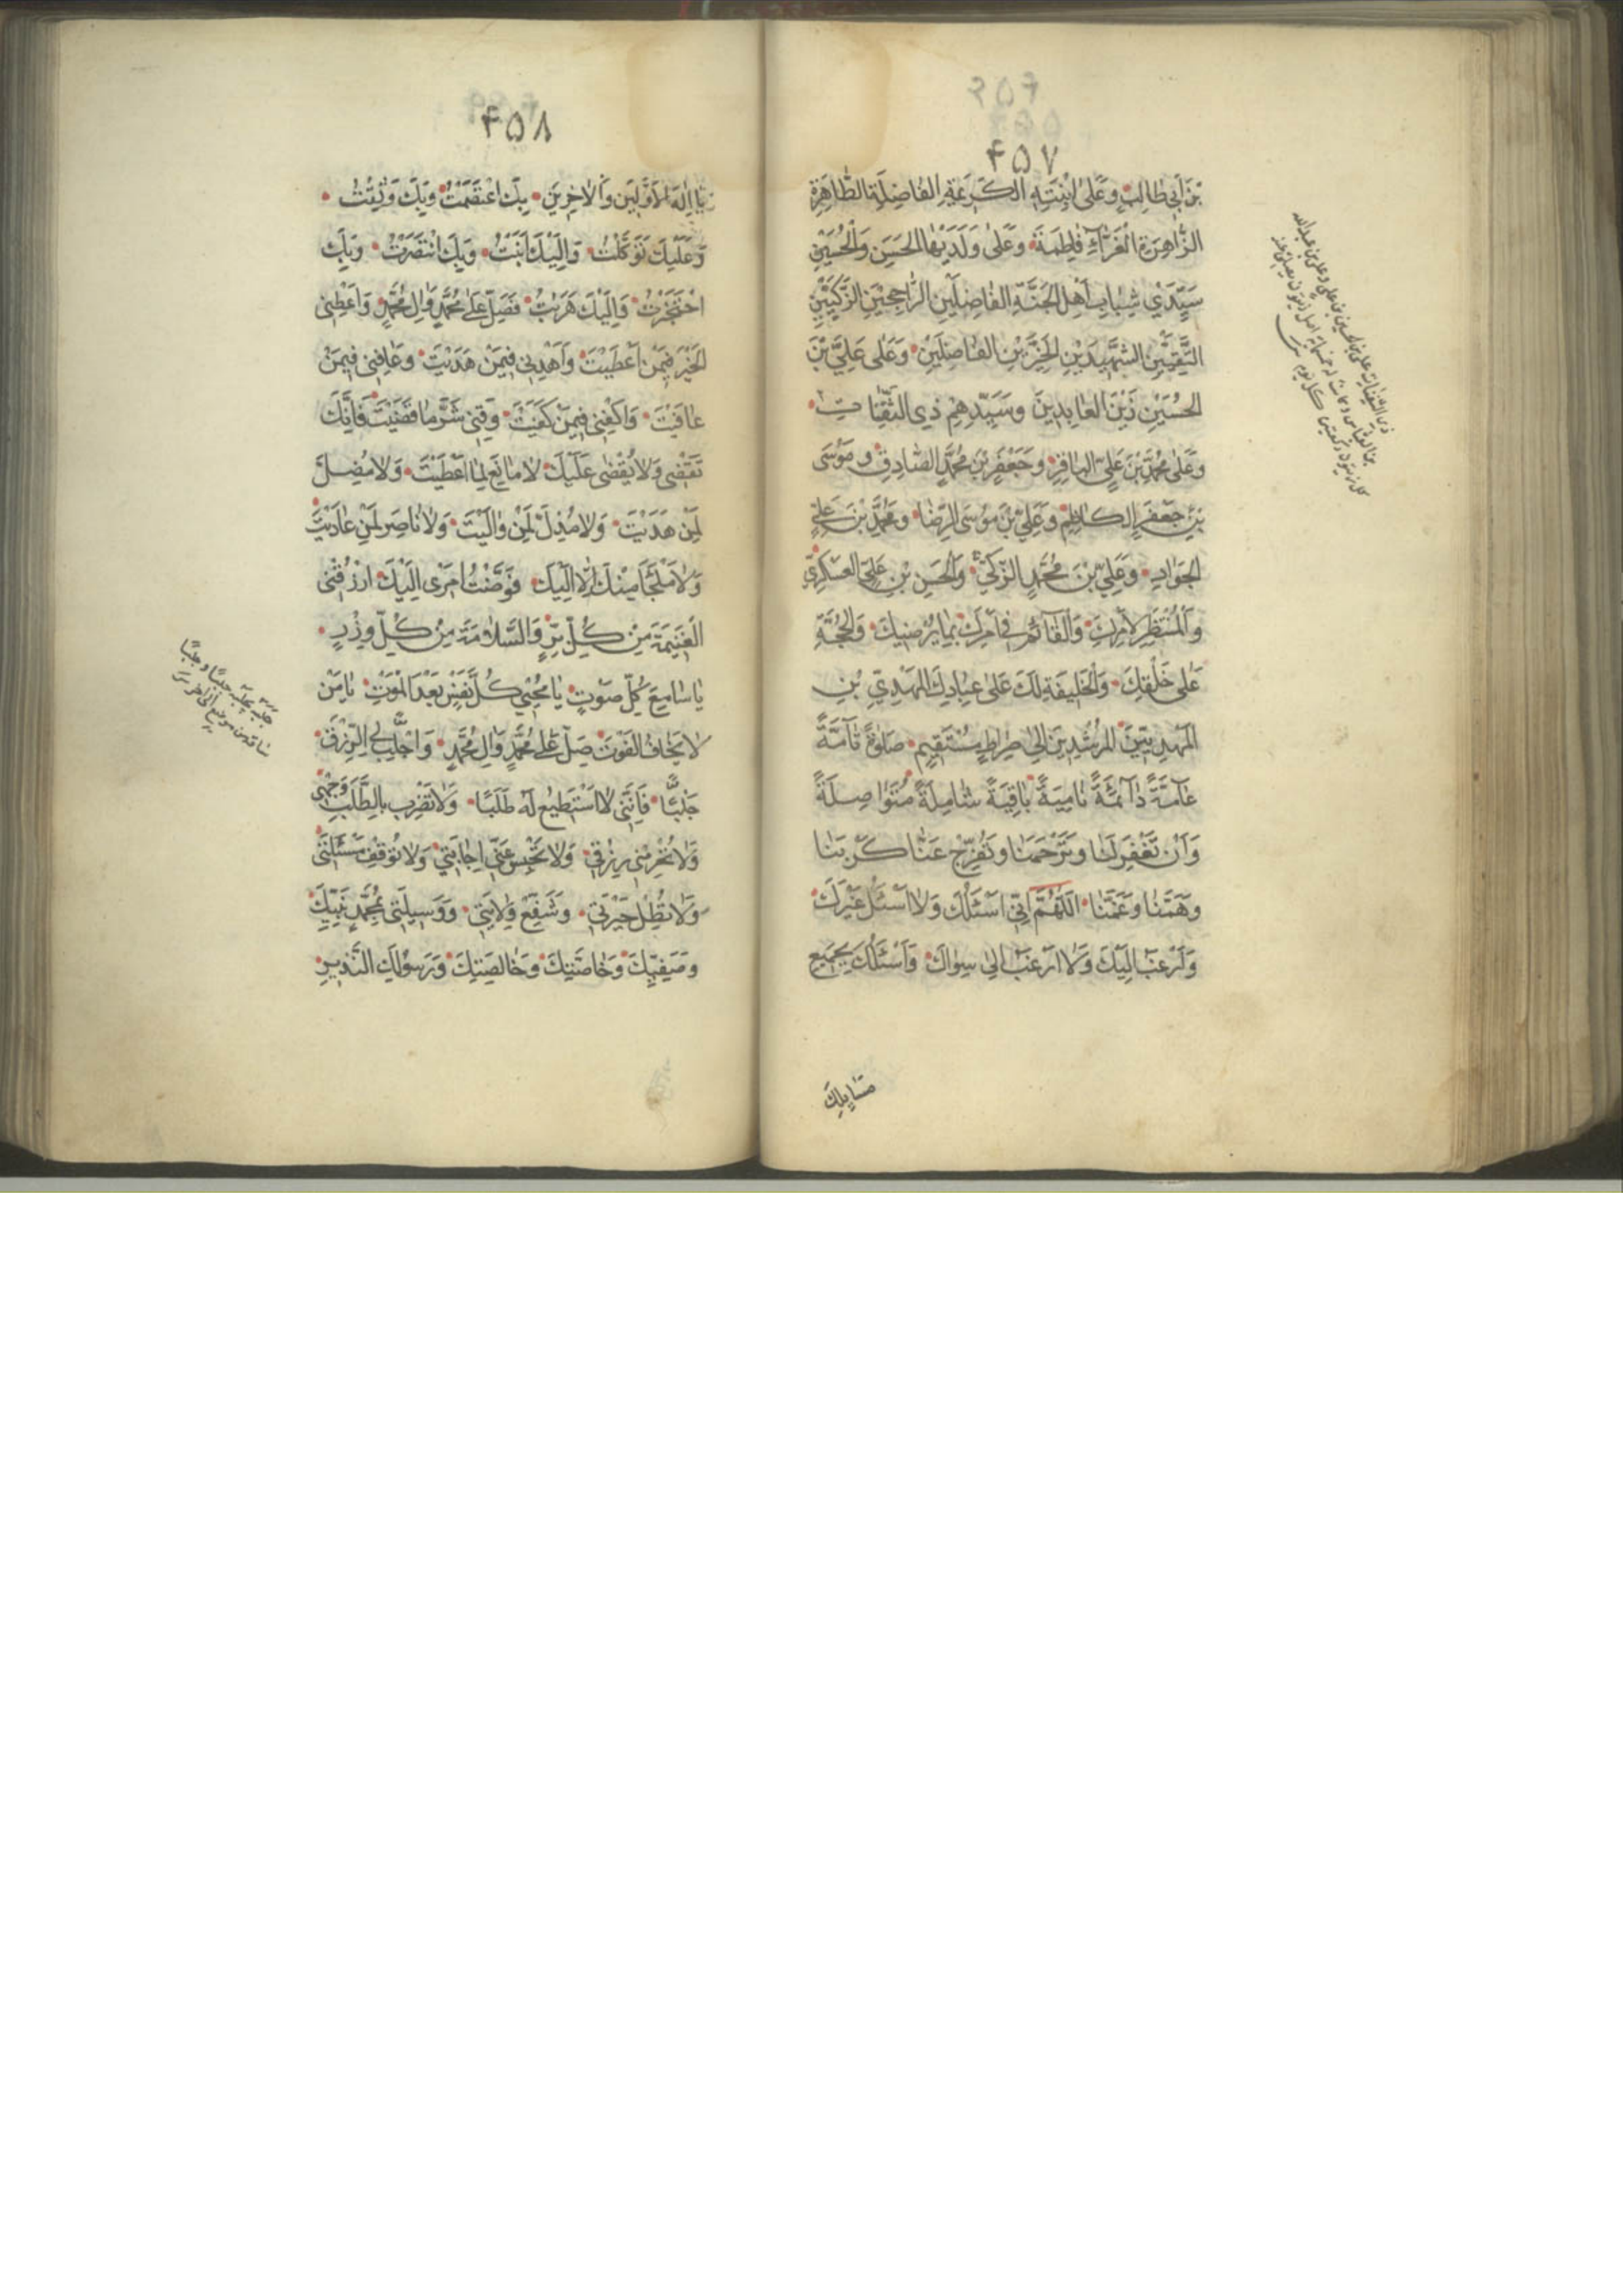 ۴۵۷
بْنِ اَبی طالِبٍ وَعَلَی ابْنَتِهِ الکَریمَةِ الفاضِلَةِ الطّاهِرَةِ
الزّاهِرَةِ الْغَرّاءِ فاطِمَةَ وَعَلی وَلَدَیْهَا الحَسَنِ وَالْحُسَیْنِ
سَیِّدَیْ شَبابِ اَهْلِ الجَنَّةِ الفاضِلَیْنِ الرّاجِحَیْنِ الزَّکِیَّیْنِ
التَّقِیَّیْنِ الشَّهیدَیْنِ الخَیِّرَیْنِ الفاضِلَیْنِ وَعَلی عَلِیِّ بْنِ
الحُسَیْنِ زَیْنِ العابِدینَ وَسَیِّدِهِمْ ذِی الثَّفِناتِ
وَعَلی مُحَمَّدِ بْنِ عَلِیٍّ الباقِرِ وَجَعْفَرِ بْنِ مُحَمَّدٍ الصّادِقِ وَمُوسَی
بْنِ جَعْفَرٍ الکاظِمِ وَعَلِیِّ بْنِ مُوسَی الرِّضا وَمُحَمَّدِ بْنِ عَلِیٍّ
الجَوادِ وَعَلِیِّ بْنِ مُحَمَّدٍ الزَّکِیِّ وَالْحَسَنِ بْنِ عَلِیٍّ العَسْکَرِیِّ
وَالْمُنْتَظَرِ لِاَمْرِکَ وَالْقآئِمِ فی اَمْرِکَ بِما یُرْضیکَ وَالْحُجَّةِ
عَلی خَلْقِکَ وَالْخَلیفَةِ لَکَ عَلی عِبادِکَ المَهْدِیِّ بْنِ
المَهْدِیّینَ المُرْشِدِ بْنِ الی صِراطٍ مُسْتَقیمٍ صَلوةً تآمَّةً
عآمَّةً دآئِمَةً نامِیَةً باقِیَةً شامِلَةً مُتَواصِلَةً
وَاَنْ تَغْفِرَ لَنا وَتَرْحَمَنا وَتُفَرِّجَ عَنّا کَرْبَنا
وَهَمَّنا وَغَمَّنا اَللّهُمَّ اِنّی اَسْئَلُکَ وَلا اَسْئَلُ غَیْرَکَ
وَاَرْغَبُ اِلَیْکَ وَلا اَرْغَبُ اِلی سِواکَ وَاَسْئَلُکَ بِجَمیعِ
مَسایِلِکَ
۴۵۸
یا اِلهَ الاَوَّلینَ وَالاخِرینَ بِکَ اعْتَصَمْتُ وَبِکَ وَثِقْتُ
وَعَلَیْکَ تَوَکَّلْتُ وَاِلَیْکَ اَنَبْتُ وَبِکَ انْتَصَرْتُ وَبِکَ
احْتَجَزْتُ وَاِلَیْکَ هَرَبْتُ فَصَلِّ عَلی مُحَمَّدٍ وَالِ مُحَمَّدٍ وَاَعْطِنی
الخَیْرَ فیمَنْ اَعْطَیْتَ وَاَهْدِنی فیمَنْ هَدَیْتَ وَعافِنی فیمَنْ
عافَیْتَ وَاکْفِنی فیمَنْ کَفَیْتَ وَقِنی شَرَّ ما قَضَیْتَ فَاِنَّکَ
تَقْضی وَلا یُقْضی عَلَیْکَ لا مانِعَ لِما اَعْطَیْتَ وَلا مُضِلَّ
لِمَنْ هَدَیْتَ وَلا مُذِلَّ لِمَنْ والَیْتَ وَلا ناصِرَ لِمَنْ عادَیْتَ
وَلا مَلْجَأَ مِنْکَ اِلّا اِلَیْکَ فَوَّضْتُ اَمْری اِلَیْکَ ارْزُقْنی
الغَنیمَةَ مِنْ کُلِّ بِرٍّ وَالسَّلامَةَ مِنْ کُلِّ وِزْرٍ
یا سامِعَ کُلِّ صَوْتٍ یا مُحْیِیَ کُلِّ نَفْسٍ بَعْدَ المَوْتِ یا مَنْ
لا یَخافُ الفَوْتَ صَلِّ عَلی مُحَمَّدٍ وَالِ مُحَمَّدٍ وَاجْلِبْ لِیَ الرِّزْقَ
جَلْبًا فَاِنَّنی لا اَسْتَطیعُ لَهُ طَلَبًا وَلا تَضْرِبْ بِالطَّلَبِ وَجْهی
وَلا تَحْرِمْنی رِزْقی وَلا تَحْبِسْ عَنّی اِجابَتی وَلا تُوقِفْ مَسْئَلَتی
وَلا تُطِلْ حَیْرَتی وَشَفِّعْ وَلایَتی وَوَسیلَتی بِمُحَمَّدٍ نَبِیِّکَ
وَصَفِیِّکَ وَخاصَّتِکَ وَخالِصَتِکَ وَرَسُولِکَ النَّذیرِ